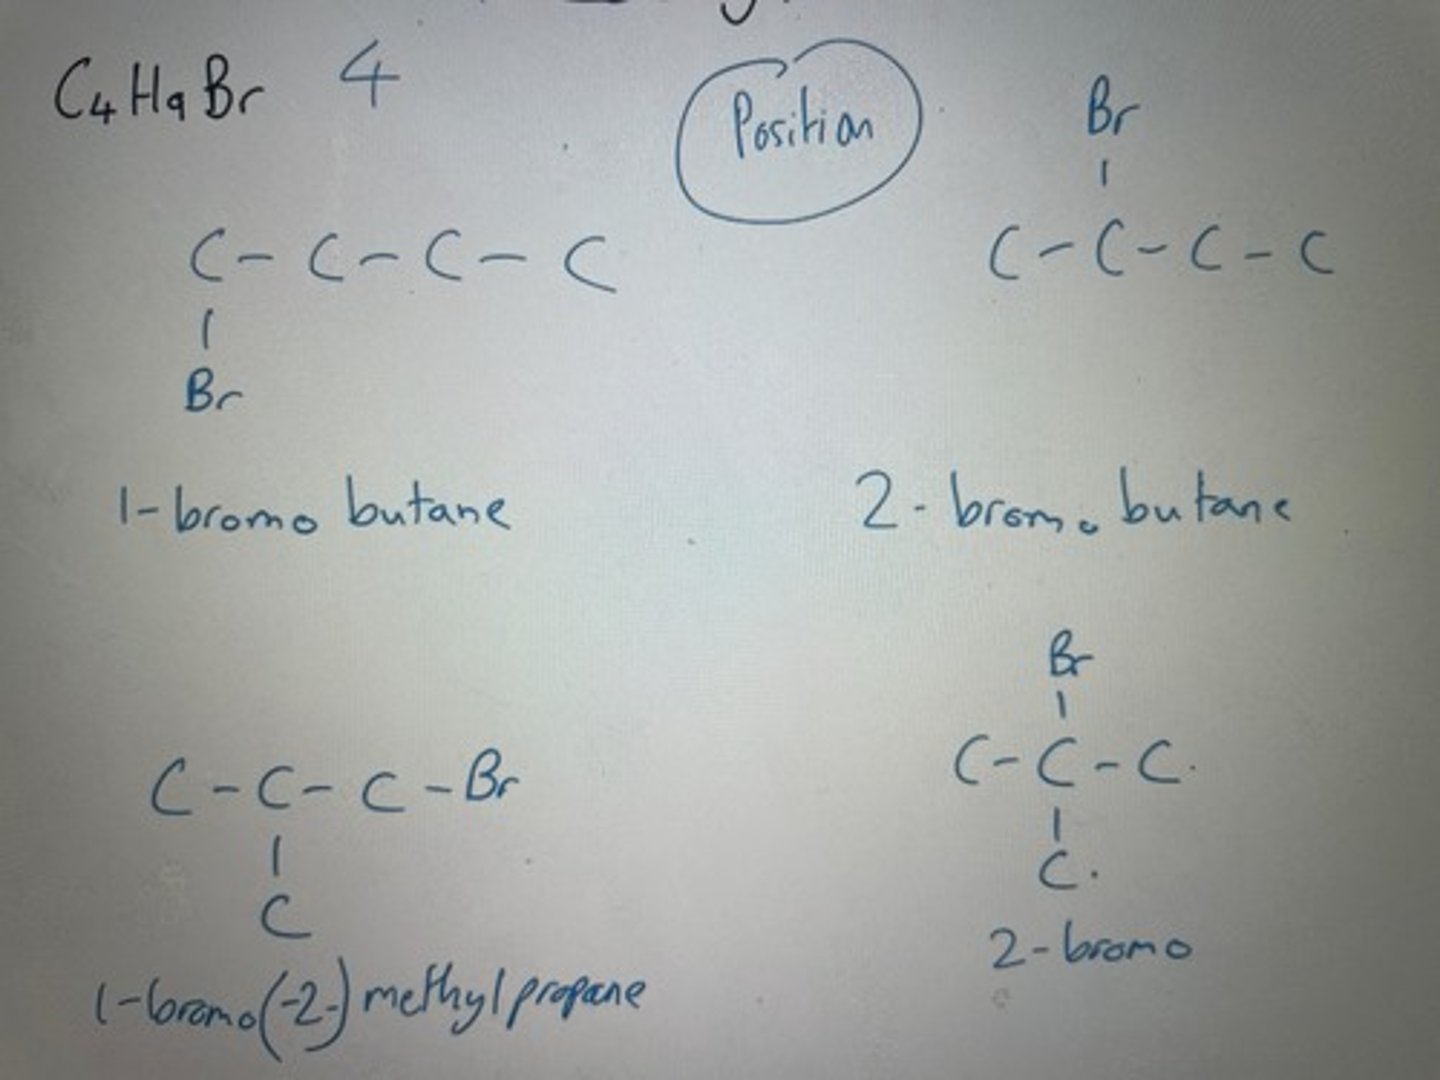 C₄H₉Br 4
Position
Br
C - C - C - C
C - C - C - C
Br
1-bromo butane
2-bromo butane
Br
C - C - C - Br
C - C - C.
C
C.
2-bromo
1-bromo(-2-)methylpropane